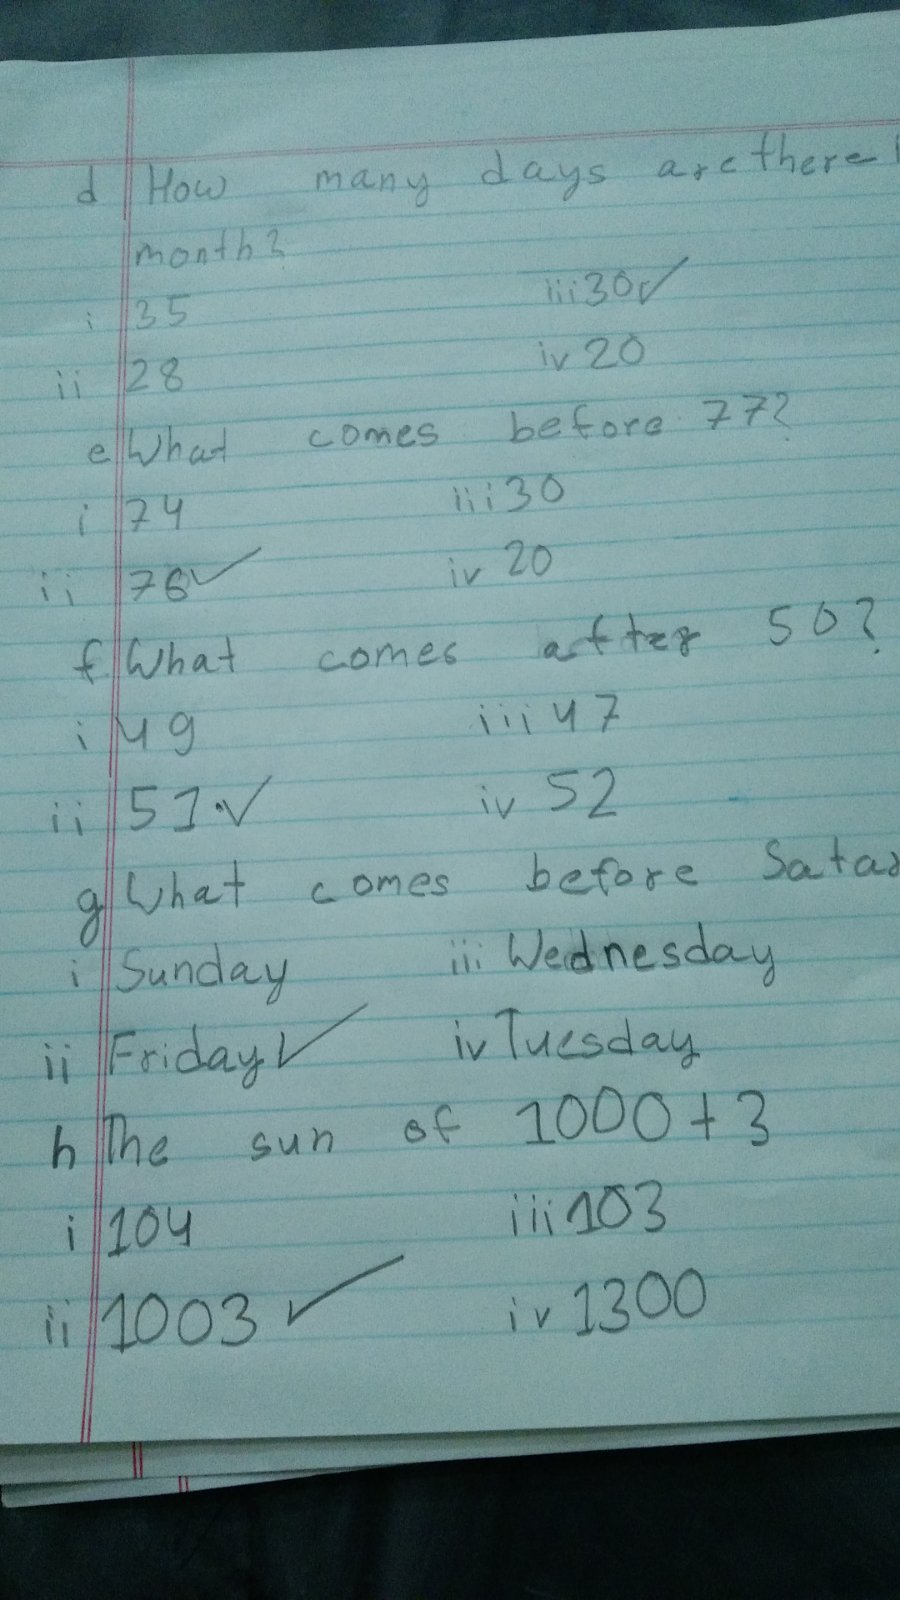 d How many days are there
month?
i 35 iii 30 ✓
ii 28 iv 20
e What comes before 77?
i 74 iii 30
ii 76 ✓ iv 20
f What comes after 50?
i 49 iii 47
ii 51 ✓ iv 52
g What comes before
i Sunday iii Wednesday
ii Friday ✓ iv Tuesday
h The sun of 1000 + 3
i 104 iii 103
ii 1003 ✓ iv 1300